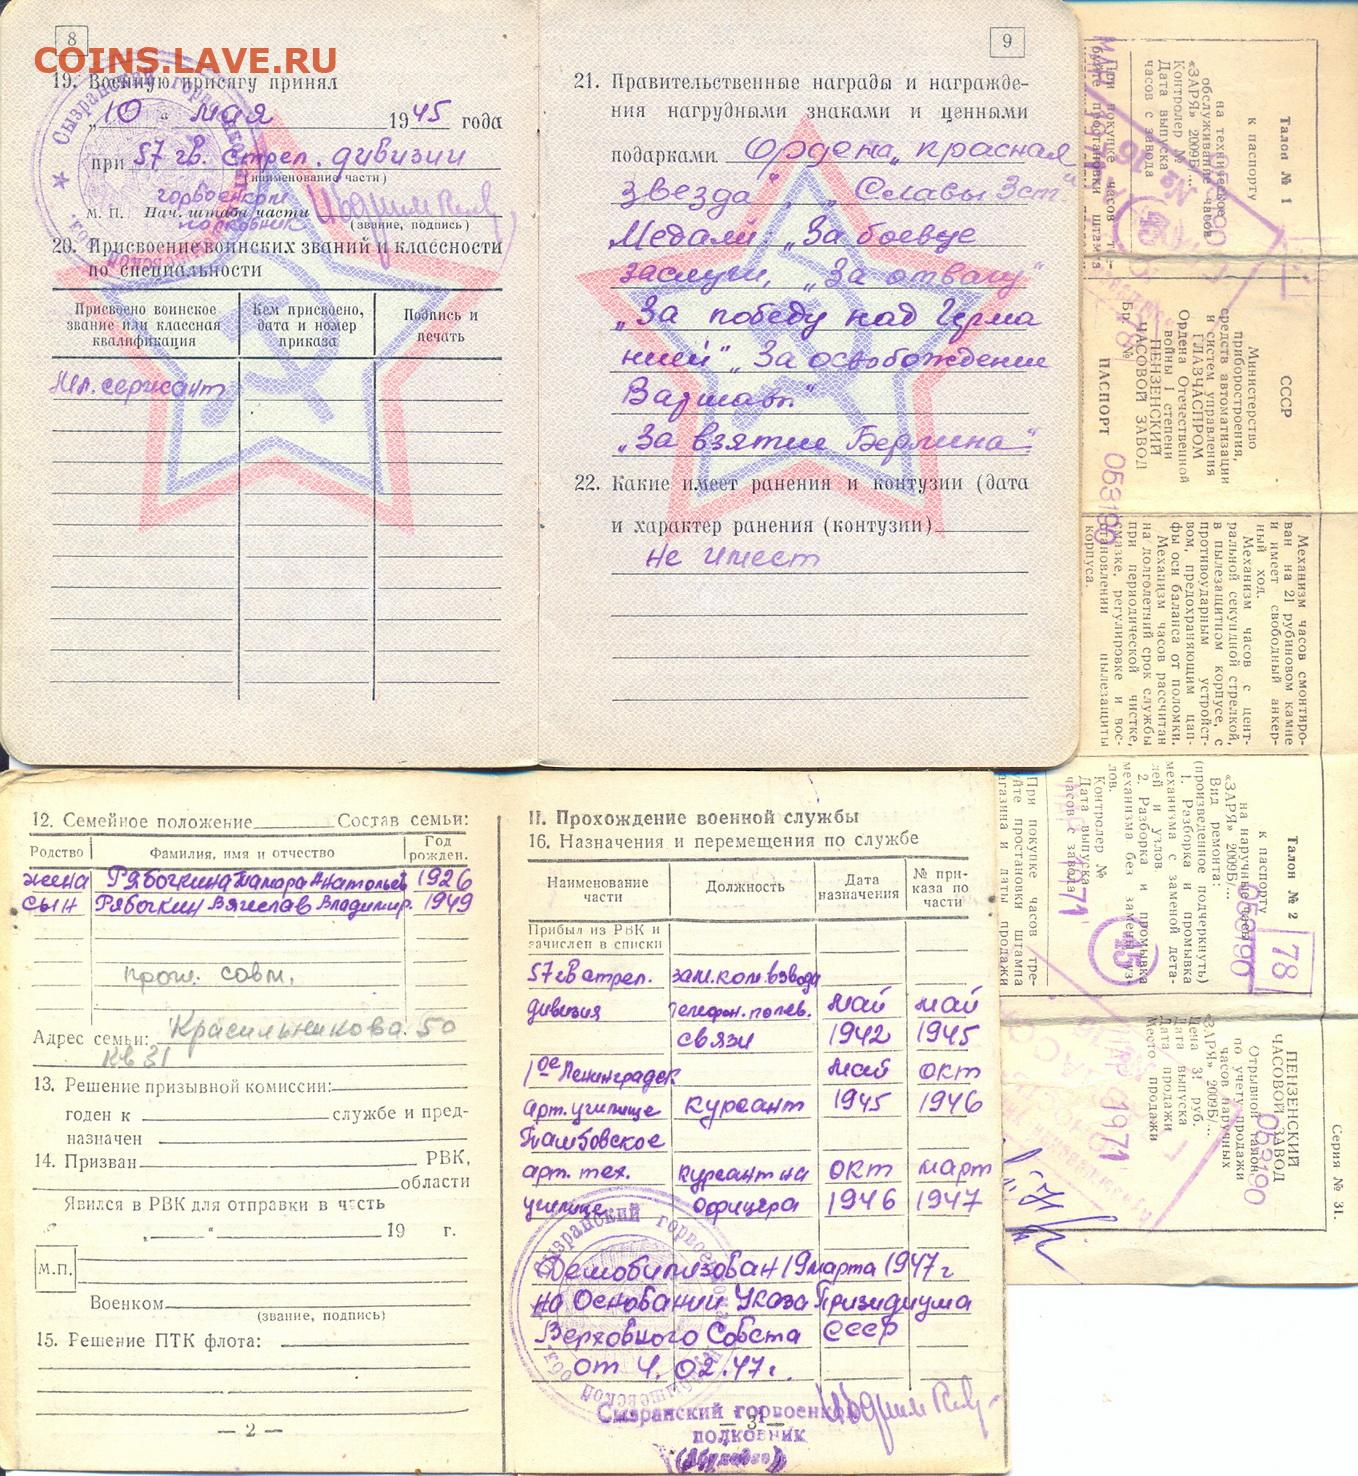 COINS.LAVE.RU
8
19. Военную присягу принял
„10“ мая 1945 года
при 57 гв. стрел. дивизии
(наименование части)
горвоенком
М. П. Нач. штаба части
полковник
(звание, подпись)
20. Присвоение воинских званий и классности
по специальности
Присвоено воинское звание или классная квалификация
Кем присвоено, дата и номер приказа
Подпись и печать
Мл. сержант
9
21. Правительственные награды и награжде-
ния нагрудными знаками и ценными
подарками Ордена „красная
звезда“, „Славы 3 ст.“
Медали: „За боевые
заслуги, „За отвагу“
„За победу над Герма
нией“ „За освобождение
Варшавы“
„За взятие Берлина“
22. Какие имеет ранения и контузии (дата
и характер ранения (контузии)
не имеет
12. Семейное положение Состав семьи:
Родство Фамилия, имя и отчество Год рожден.
жена Рябочкина Тамара Анатольев 1926
сын Рябочкин Вячеслав Владимир. 1949
прож. совм.
Адрес семьи: Красильникова 50
кв 31
13. Решение призывной комиссии:
годен к службе и пред-
назначен
14. Призван РВК,
области
Явился в РВК для отправки в часть
„ “ 19 г.
М.П.
Военком
(звание, подпись)
15. Решение ПТК флота:
— 2 —
II. Прохождение военной службы
16. Назначения и перемещения по службе
Наименование части
Должность
Дата назначения
№ при- каза по части
Прибыл из РВК и
зачислен в списки
57 гв стрел. зам. ком. взвода
дивизия телефон. полев. май май
связи 1942 1945
1ое Ленинградск май окт
арт. училище курсант 1945 1946
Тамбовское
арт. тех. курсант на окт март
училище офицера 1946 1947
Демобилизован 19 марта 1947 г
на основании Указа Призидиума
Верховного Совета СССР
от 4. 02. 47 г.
Сызранский горвоенком
— 3 —
полковник
Талон № 1
к паспорту
на техническое
обслуживание часов
«ЗАРЯ» 2009Б/...
Контролер №
Дата выпуска
часов с завода
При покупке часов тре-
СССР
Министерство
приборостроения,
средств автоматизации
и систем управления
ГЛАВЧАСПРОМ
Ордена Отечественной
войны I степени
ПЕНЗЕНСКИЙ
ЧАСОВОЙ ЗАВОД
ПАСПОРТ
053190
Механизм часов смонтиро-
ван на 21 рубиновом камне
и имеет свободный анкер-
ный ход.
Механизм часов с цент-
ральной секундной стрелкой,
в пылезащитном корпусе, с
противоударным устройст-
вом, предохраняющим цап-
фы оси баланса от поломки.
Механизм часов рассчитан
на долголетний срок службы
при периодической чистке,
смазке, регулировке и вос-
становлении пылезащиты
корпуса.
Талон № 2
78
к паспорту
на наручные часы
«ЗАРЯ» 2009Б/...
053190
Вид ремонта:
(произведенное подчеркнуть)
1. Разборка и промывка
механизма с заменой дета-
лей и узлов.
2. Разборка и промывка
механизма без замены уз-
лов.
Контролер №
15
Дата выпуска
часов с завода
1971
При покупке часов тре-
буйте простановки штампа
магазина и даты продажи
Серия № 31.
ПЕНЗЕНСКИЙ
ЧАСОВОЙ ЗАВОД
053190
Отрывной талон
по учету продажи
часов наручных
«ЗАРЯ» 2009Б/...
Цена 31 руб.
Дата выпуска
Дата продажи
Место продажи
1971